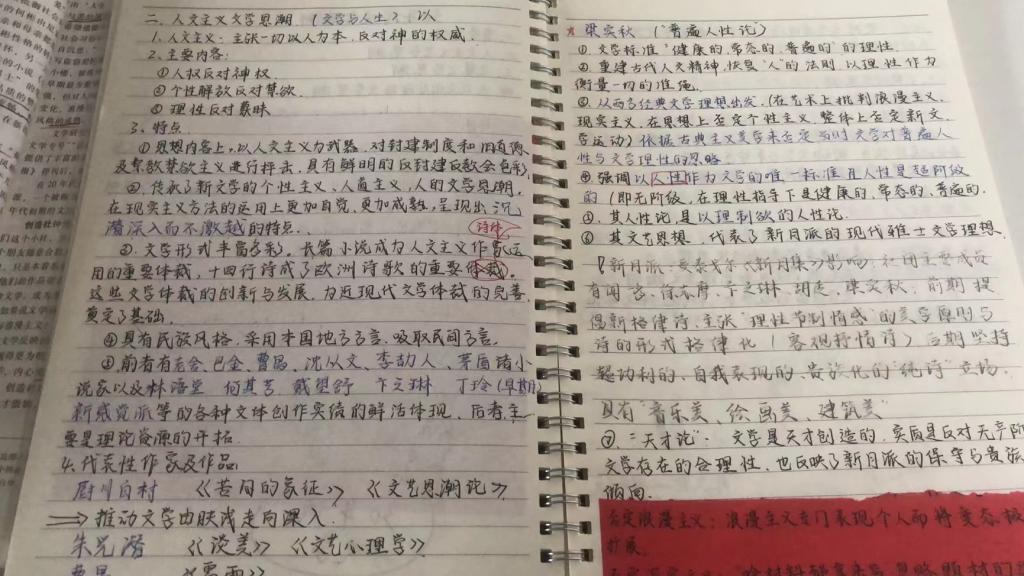 二、人文主义文学思潮.(文学与人生) 以
1.人文主义:主张一切以人为本,反对神的权威.
2.主要内容:
①人权反对神权.
②个性解放反对禁欲.
③理性反对蒙昧
3.特点.
①思想内容上,以人文主义为武器,对封建制度和
及禁欲主义进行抨击,具有鲜明的反封建反教会色彩.
②.传承了新文学的个性主义、人道主义,人的文学思潮,
在现实主义方法的运用上更加自觉,更加成熟,呈现出沉
潜深入而不激越的特点.
诗体
③.文学形式丰富多彩,长篇小说成为人文主义作家运
用的重要体裁,十四行诗成了欧洲诗歌的重要体裁,
这些文学体裁的创新与发展,为近现代文学体裁的完善
奠定了基础.
④具有民族风格,采用本国地方方言,吸取民间方言,
⑤前者有老舍、巴金、曹禺、沈从文、李劼人、茅盾诸小
说家以及林语堂 何其芳 戴望舒 卞之琳 丁玲(早期)
新感觉派等的各种文体创作实绩的鲜活体现、后者主
要是理论资源的开拓.
4.代表性作家及作品.
厨川白村 《苦闷的象征》 《文艺思潮论》
⟹推动文学由肤浅走向深入.
朱光潜 《谈美》《文艺心理学》
梁实秋 ("普遍人性论)
①.文学标准"健康的,常态的,普遍的"的理性.
②.重建古代人文精神,恢复"人"的法则,以理性作为
衡量一切的准绳.
③.从西方经典文学理想出发,(在艺术上批判浪漫主义,
现实主义,在思想上否定个性主义,整体上否定新文
学运动)依据古典主义美学来否定五四时文学对普遍人
性与文学理性的忽略
④强调以人性作为文学的唯一标准且人性是超阶级
的(即无阶级,在理性指导下是健康的,常态的,普遍的.
⑤.其人性论是以理制欲的人性论.
⑥其文艺思想,代表了新月派的现代雅士文学理想.
『新月派:受泰戈尔《新月集》影响,社团主要成员
有闻一多、徐志摩、卞之琳、胡适、梁实秋.前期提
倡新格律诗,主张"理性节制情感"的美学原则与
诗的形式格律化(客观抒情诗)后期坚持
超功利的、自我表现的、贵族化的"纯诗"立场.
具有"音乐美、绘画美、建筑美"
⑦."天才论":文学是天才创造的,实质是反对无产阶
文学存在的合理性,也反映了新月派的保守与贵族
倾向.
否定浪漫主义:浪漫主义专门表现个人而将变态
扩展.